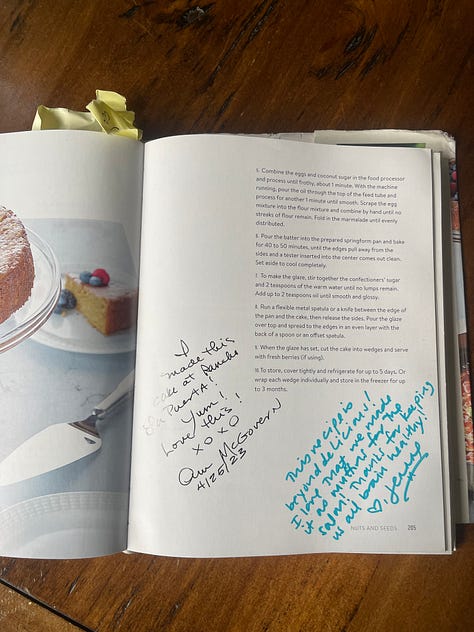 5. Combine the eggs and coconut sugar in the food processor
and process until frothy, about 1 minute. With the machine
running, pour the oil through the top of the feed tube and
process for another 1 minute until smooth. Scrape the egg
mixture into the flour mixture and combine by hand until no
streaks of flour remain. Fold in the marmalade until evenly
distributed.
6. Pour the batter into the prepared springform pan and bake
for 40 to 50 minutes, until the edges pull away from the
sides and a tester inserted into the center comes out clean.
Set aside to cool completely.
7. To make the glaze, stir together the confectioners' sugar
and 2 teaspoons of the warm water until no lumps remain.
Add up to 2 teaspoons oil until smooth and glossy.
8. Run a flexible metal spatula or a knife between the edge of
the pan and the cake, then release the sides. Pour the glaze
over top and spread to the edges in an even layer with the
back of a spoon or an offset spatula.
9. When the glaze has set, cut the cake into wedges and serve
with fresh berries (if using).
10. To store, cover tightly and refrigerate for up to 5 days. Or
wrap each wedge individually and store in the freezer for up
to 3 months.
I
made this
cake at Rancho
La Puerta!
Yum!
Love this!
XOXO
Ann McGovern
4/25/23
This recipe is
beyond delicious!
I love that we made
it as muffins for the
salon! Thanks for keeping
us all brain healthy!
♡, Jenny
NUTS AND SEEDS 205